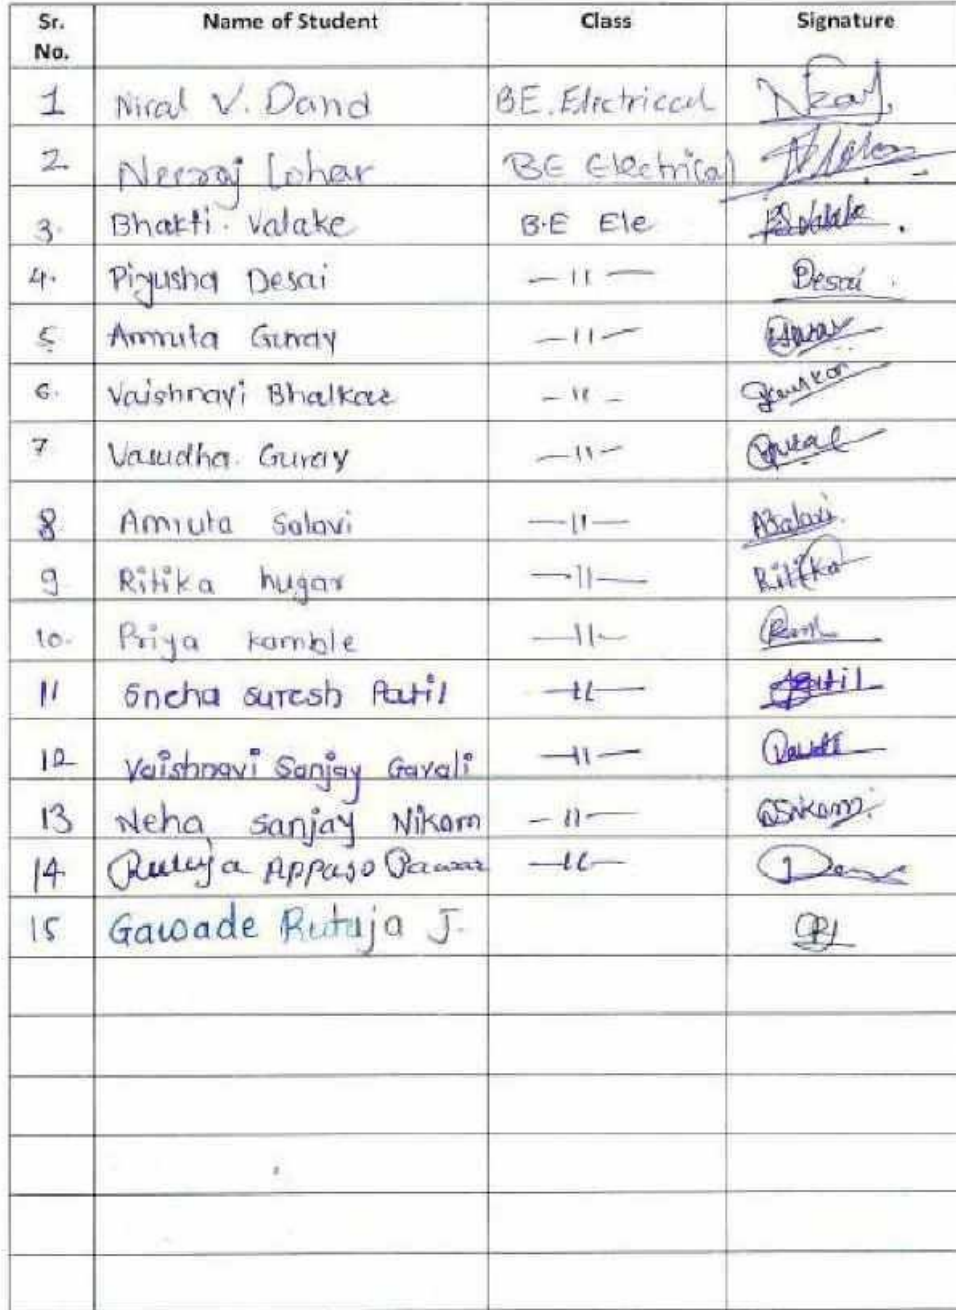 Sr. No. Name of Student Class Signature
1 Niral V. Dand BE. Electrical
2 Neeraj Lohar BE Electrical
3. Bhakti. Valake B.E Ele
4. Piyusha Desai —11— Desai
5 Amruta Gurav —11—
6. Vaishnavi Bhalkar —11—
7 Vasudha. Gurav —11—
8 Amruta Salavi —11— ASalavi.
9 Ritika hugar —11— Ritika
10. Priya kamble —11—
11 Sneha suresh Patil —11— Patil
12 Vaishnavi Sanjay Gavali —11—
13 Neha sanjay Nikam —11— Nikam
14. Rutuja Appaso Pawar —11—
15 Gawade Rutuja J.